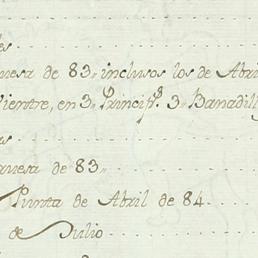 es
uesa de 83,, inclusos los de Abri
ientre, en 3,, Princip.s 3,, Banadill
as
quesa de 83,,
Punta de Abril de 84
de Julio